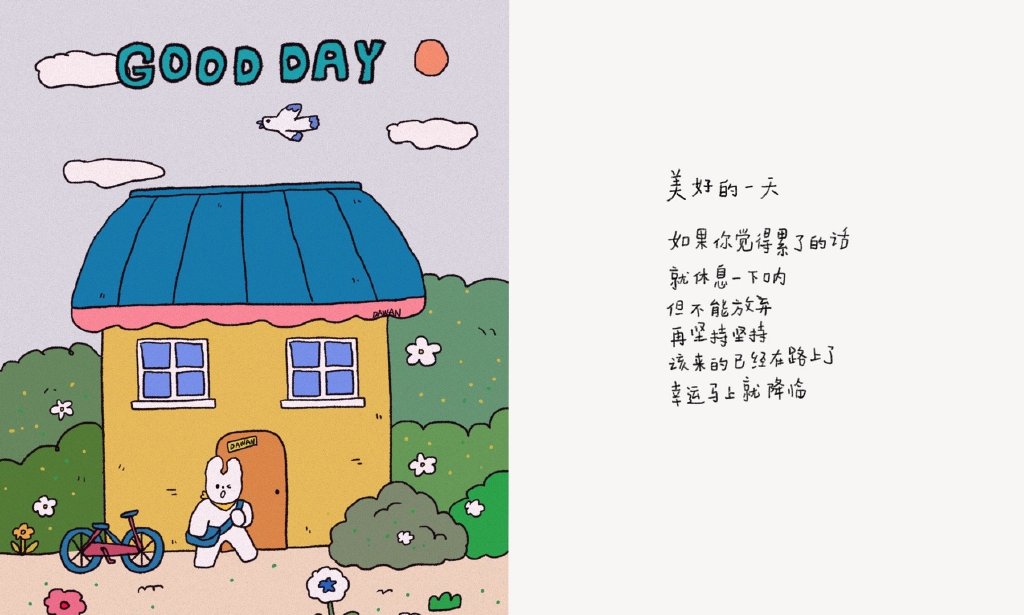 GOOD DAY
DAWAN
DAWAN
美好的一天
如果你觉得累了的话
就休息一下呐
但不能放弃
再坚持坚持
该来的已经在路上了
幸运马上就降临